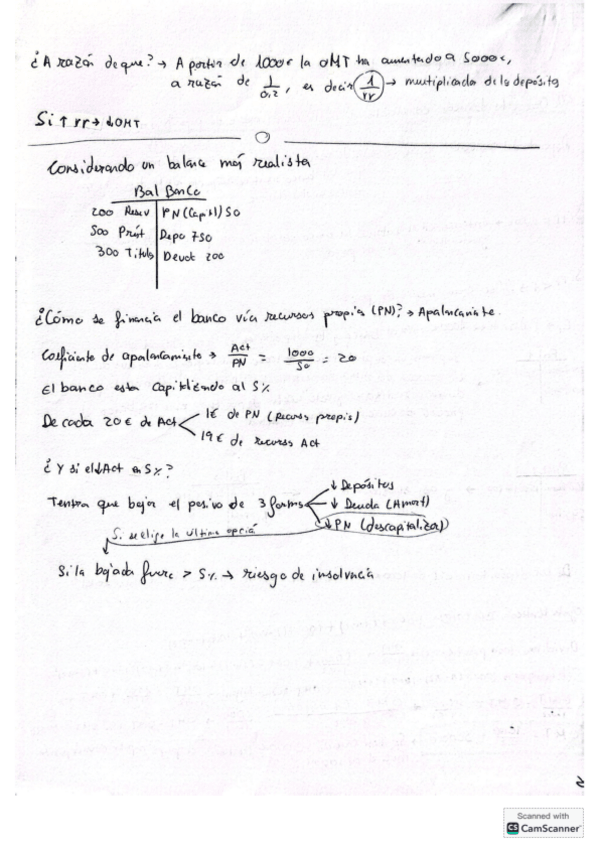 ¿A razón de que? → A partir de 1000€ la OMT ha aumentado a 5000€,
a razón de 1/0,2, es decir 1/rr → multiplicador de los depósitos
Si ↑ rr → ↓OMT
Considerando un balance más realista
Bal Banco
200 Reserv | PN (Capital) 50
500 Prést | Depo 750
300 Títulos | Deuda 200
¿Cómo se financia el banco vía recursos propios (PN)? → Apalancamiento.
Coeficiente de apalancamiento → Act/PN = 1000/50 = 20
El banco esta capitalizando al 5%
De cada 20€ de Act
1€ de PN (Recursos propios)
19€ de recursos Act
¿Y si el ↓Act en 5%?
↓ Depósitos
Tentra que bajar el pasivo de 3 formas
↓ Deuda (Amort)
↓ PN (descapitalizar)
Si se elige la ultima opción
Si la bajada fuere > 5% → riesgo de insolvencia
2
Scanned with
CS CamScanner